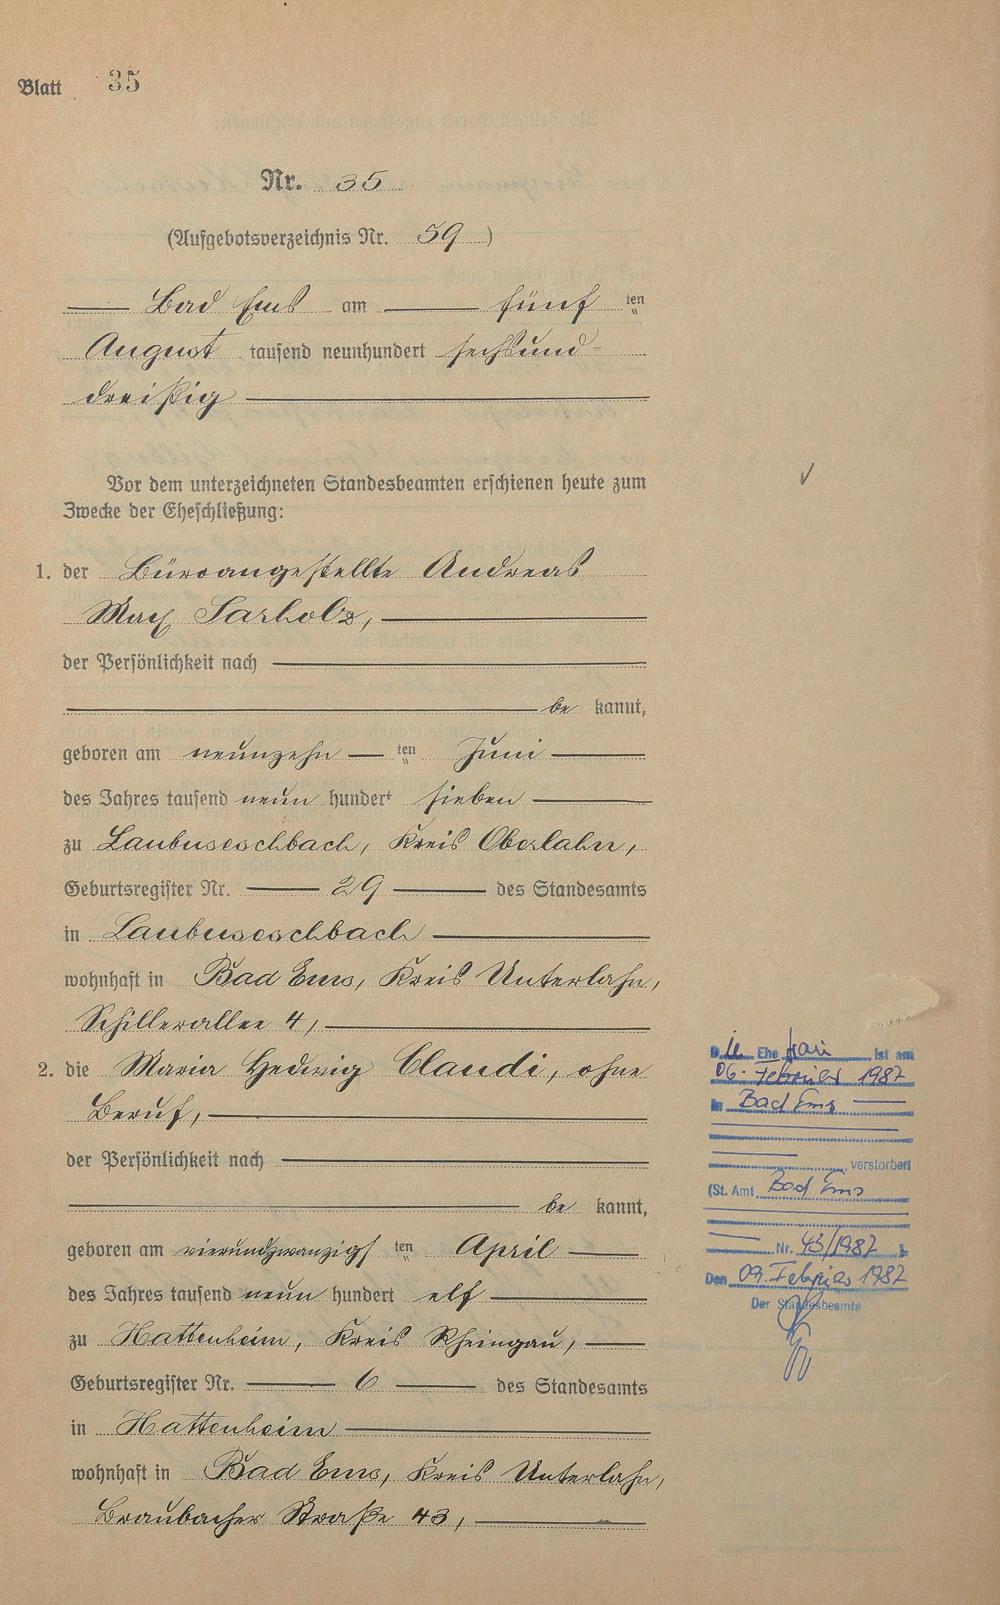 Blatt 35
Nr. 35
(Aufgebotsverzeichnis Nr. 59)
Bad Ems am fünf ten
August tausend neunhundert sechsund-
dreißig
Vor dem unterzeichneten Standesbeamten erschienen heute zum
Zwecke der Eheschließung:
1. der Büroangestellte Andreas
Max Sarholz,
der Persönlichkeit nach
be kannt,
geboren am neunzehn ten Juni
des Jahres tausend neun hundert sieben
zu Laubuseschbach, Kreis Oberlahn,
Geburtsregister Nr. 29 des Standesamts
in Laubuseschbach
wohnhaft in Bad Ems, Kreis Unterlahn,
Schillerallee 4,
2. die Maria Hedwig Claudi, ohne
Beruf,
der Persönlichkeit nach
be kannt,
geboren am vierundzwanzigs ten April
des Jahres tausend neun hundert elf
zu Hattenheim, Kreis Rheingau,
Geburtsregister Nr. 6 des Standesamts
in Hattenheim
wohnhaft in Bad Ems, Kreis Unterlahn,
Braubacher Straße 43,
Die Ehefrau ist am
06. Februar 1987
in Bad Ems
verstorben
(St. Amt Bad Ems
Nr. 43/1987 ).
Den 09. Februar 1987
Der Standesbeamte